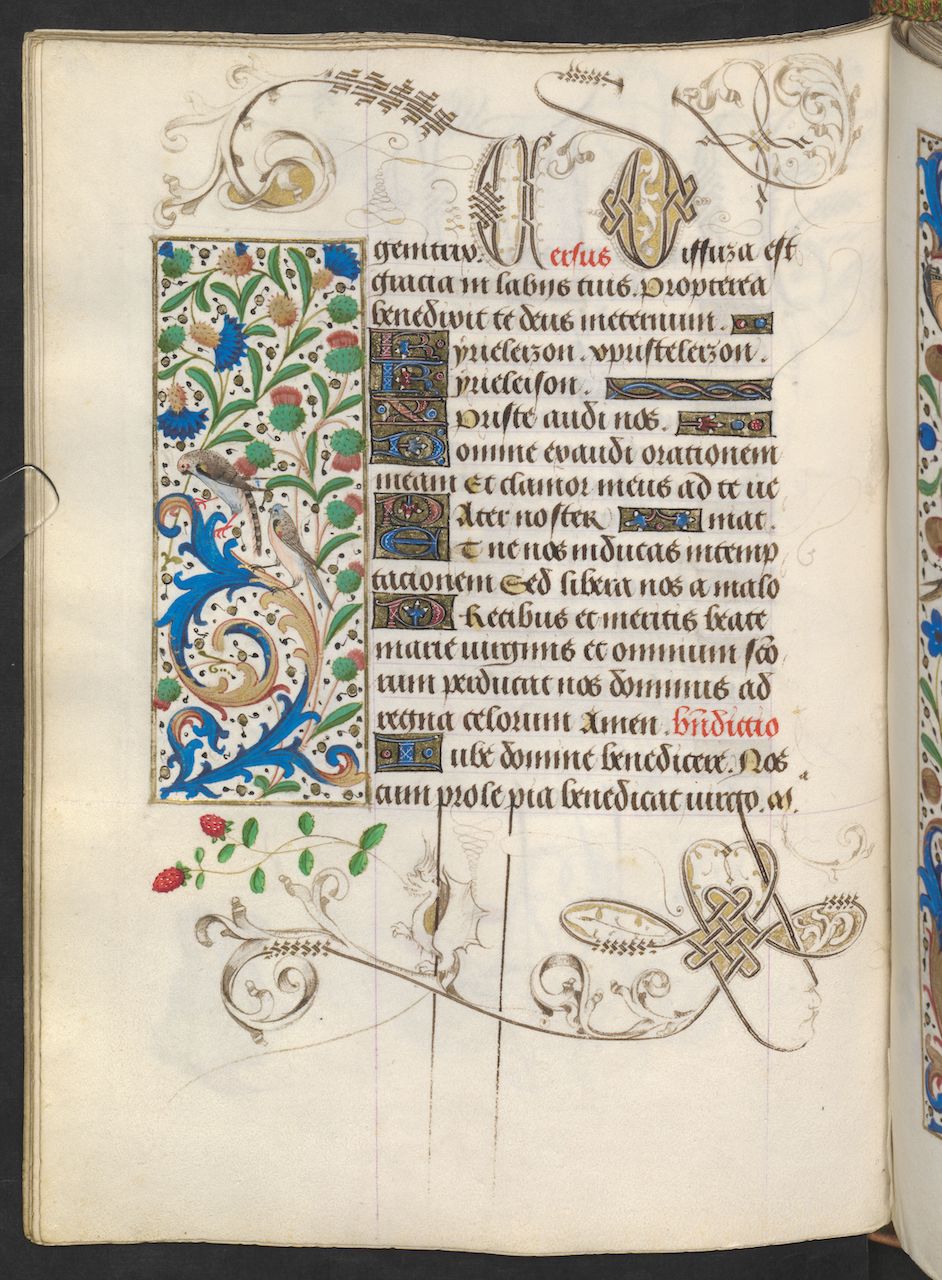 genitrix. Versus Diffuza est
gracia in labijs tuis. Propterea
benedixit te deus ineternum.
Kyrieleizon. xpristeleizon.
Kyrieleison.
Xpriste audi nos.
Domine exaudi orationem
meam Et clamor meus ad te ve
PAter noster mar.
Et ne nos inducas intemp
tacionem Sed libera nos a malo
PRecibus et meritis beate
marie virginis et omnium scō
rum perducat nos dominus ad
regna celorum Amen. bn̄dictio
Iube domine benedicere. Nos
cum prole pia benedicat virgo.